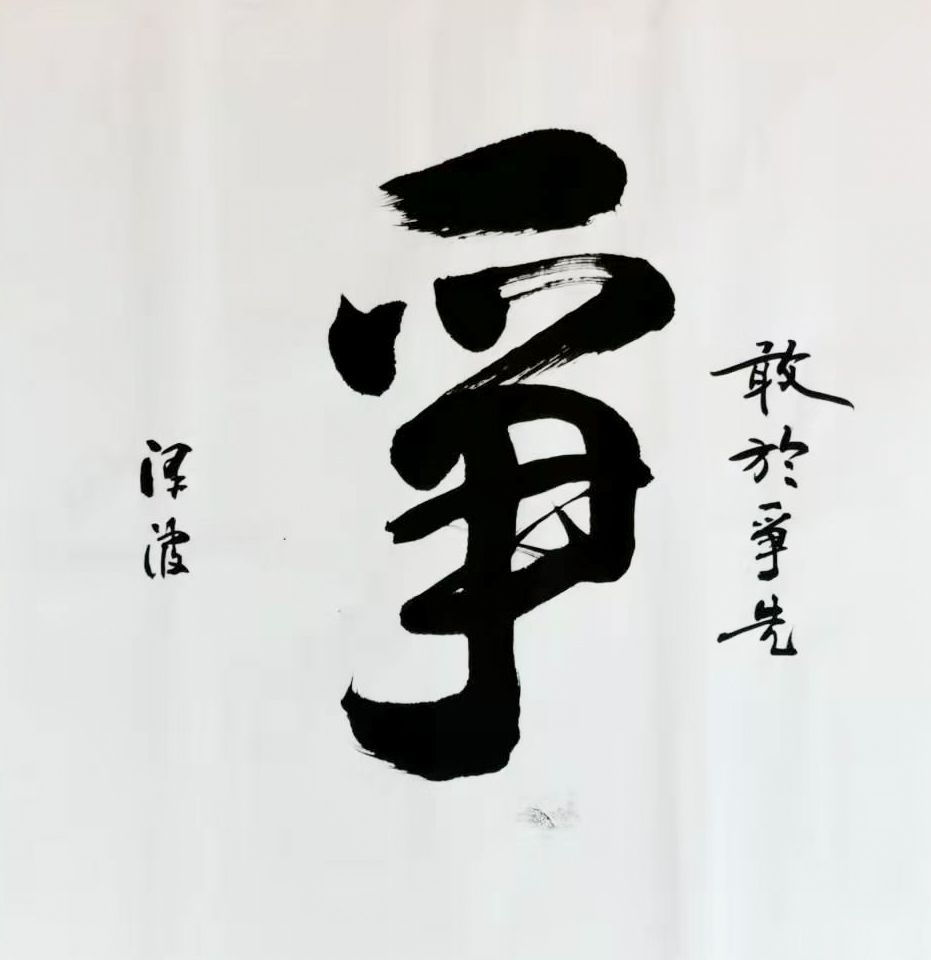 敢於爭先
爭
泽波